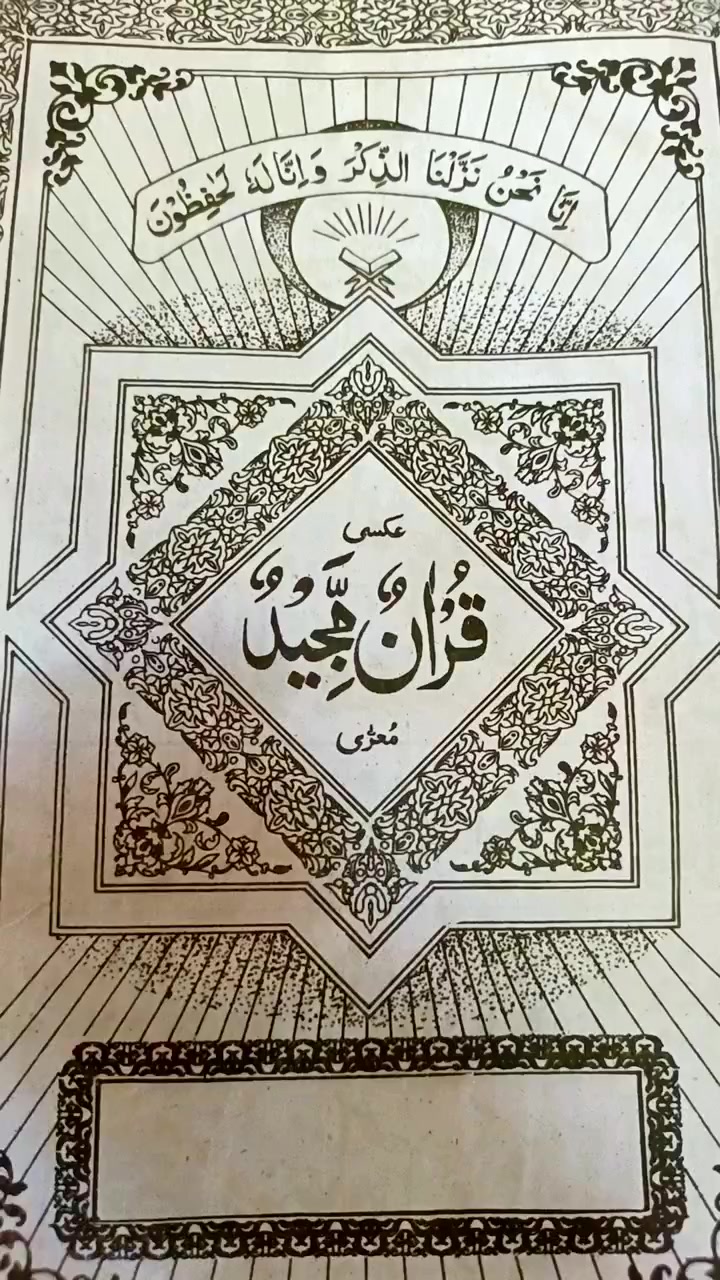 اِنَّا نَحْنُ نَزَّلْنَا الذِّكْرَ وَاِنَّا لَهٗ لَحٰفِظُوْنَ
عکسی
قُرْاٰنٌ مَّجِیْدٌ
مُعرّٰی